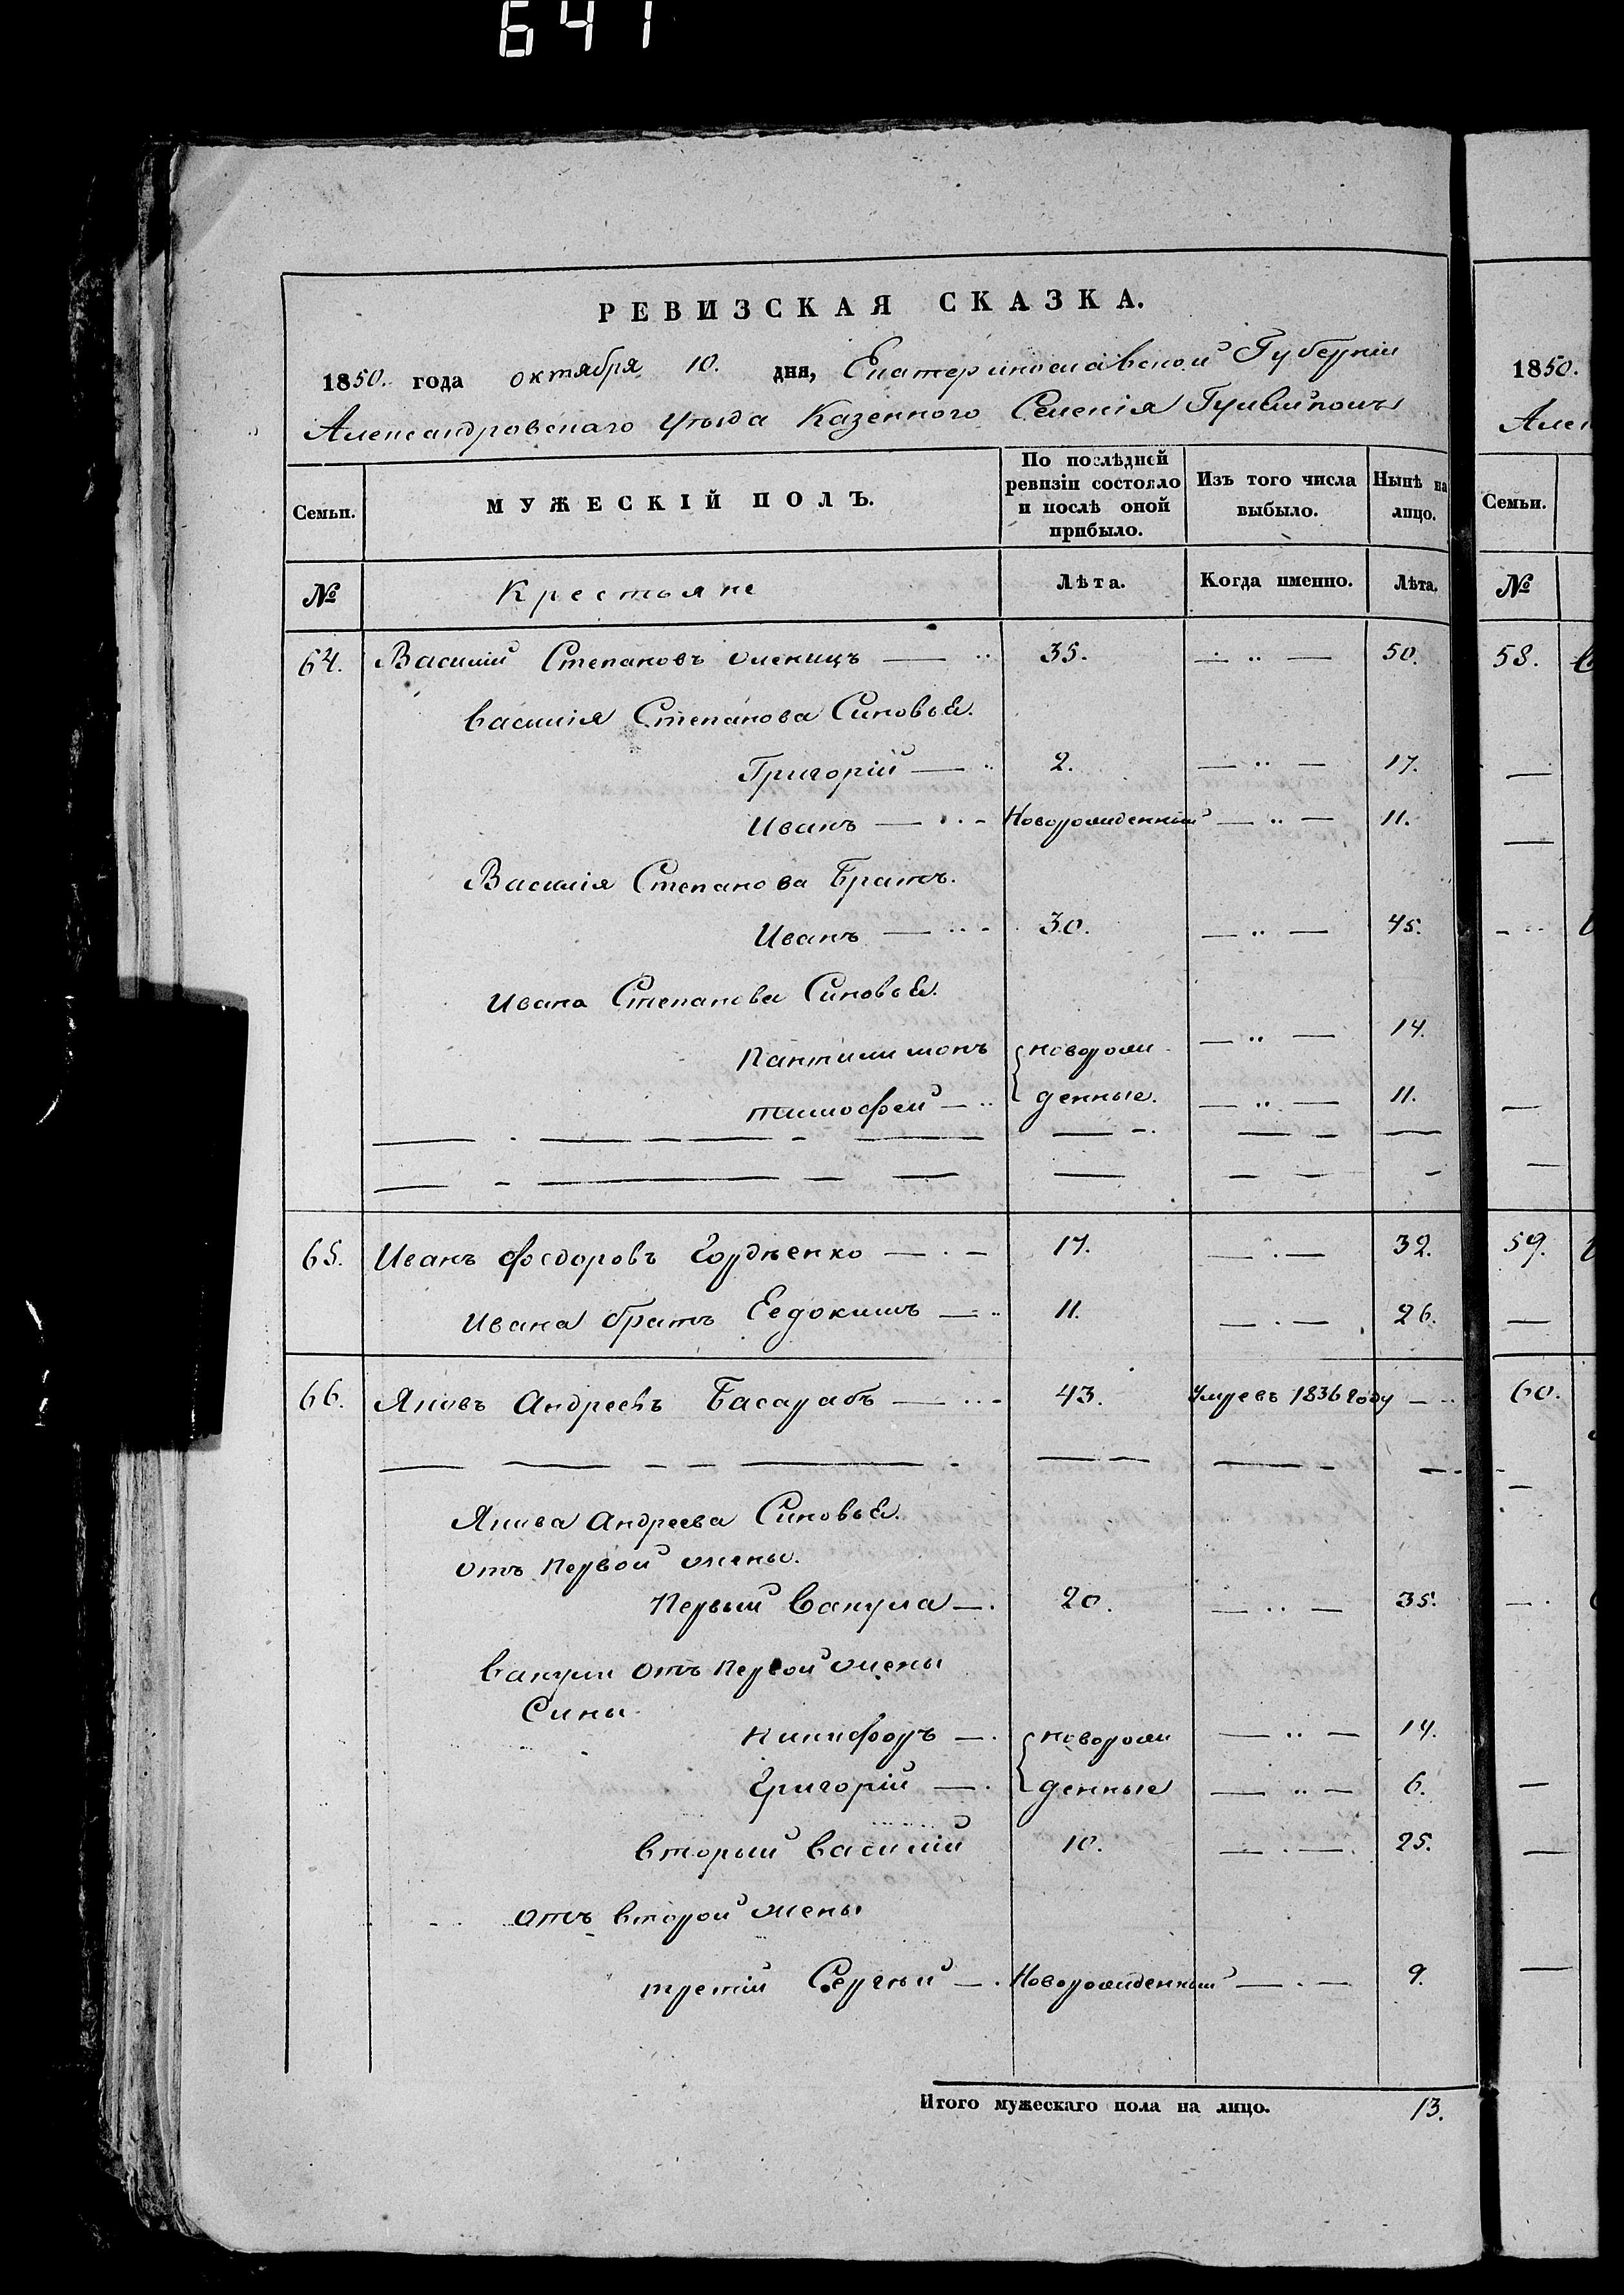 641
РЕВИЗСКАЯ СКАЗКА.
1850. года октября 10. дня, Екатеринославской Губерніи
Александровскаго Уѣзда Казенного Селенія
Семьи. МУЖЕСКІЙ ПОЛЪ. По послѣдней ревизіи состояло и послѣ оной прибыло. Изъ того числа выбыло. Нынѣ на лицо.
№ Крестьяне Лѣта. Когда именно. Лѣта.
64. Василій Степановъ 35. 50.
Василія Степанова Синовья.
Григорій 2. 17.
Иванъ Новорожиденный 11.
Василія Степанова Братъ.
Иванъ 30. 45.
Ивана Степанова Синовья.
Пантилимонъ новорожи 14.
тимофей денные. 11.
65. Иванъ Федоровъ Гордѣенко 17. 32.
Ивана братъ Евдокимъ 11. 26.
66. Яковъ Андреевъ Басарабъ 43. Умре въ 1836 году
Якова Андреева Синовья.
отъ Первой жены.
Первый Вакула 20. 35.
Вакули отъ первой жены
Сины.
Никифоръ новорожи 14.
Григорій денные 6.
вторый Василій 10. 25.
отъ второй жены
третій Сергѣй Новорожиденный 9.
Итого мужескаго пола на лицо. 13.
1850.
Семьи.
№
58.
59.
60.